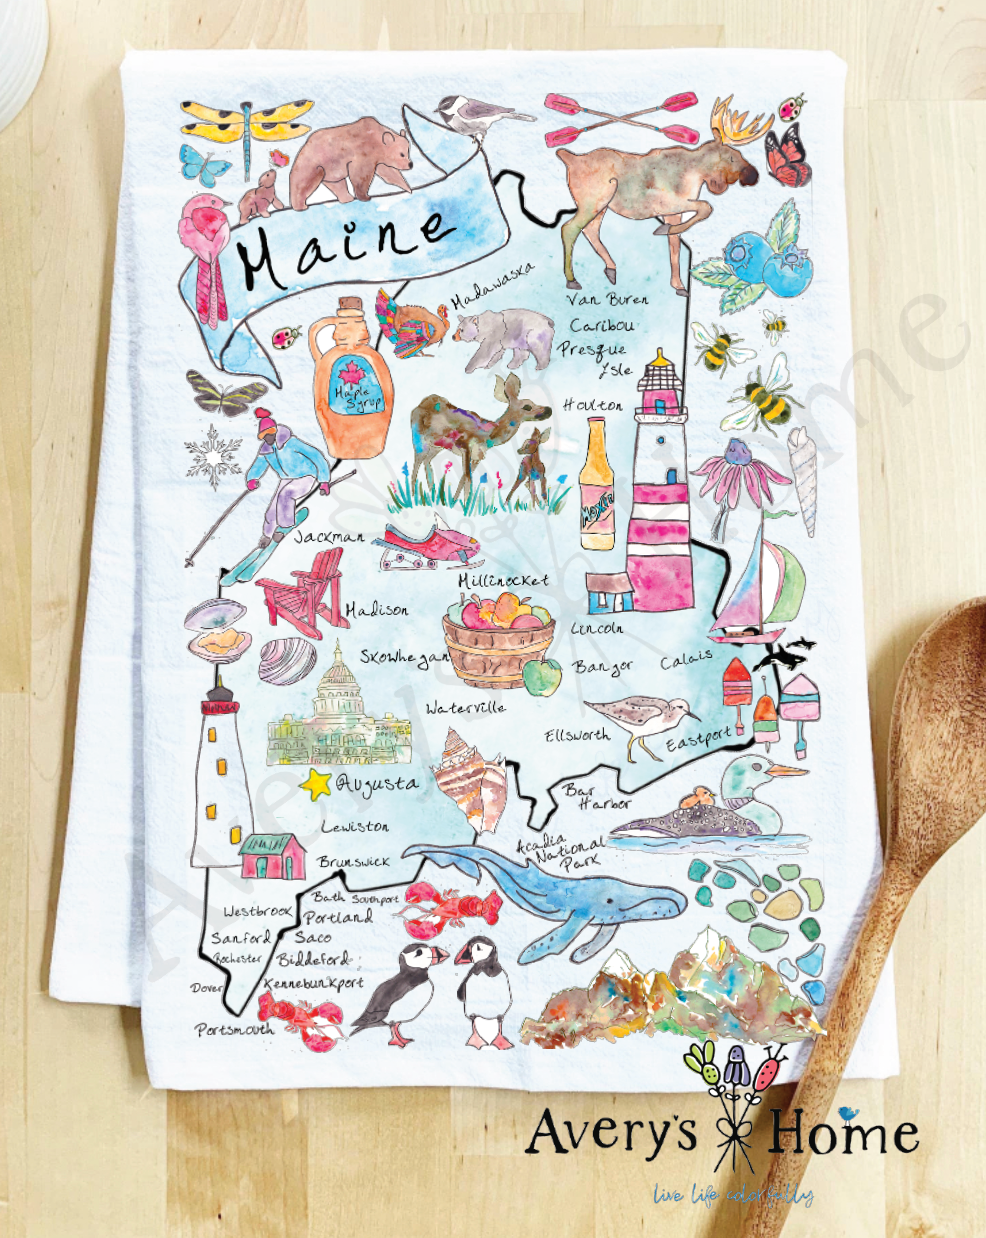 Maine
Madawaska
Van Buren
Caribou
Presque
Isle
Maple
Syrup
Houlton
Moxie
Jackman
Millinocket
Madison
Lincoln
Skowhegan
Bangor
Calais
Waterville
Ellsworth
Eastport
Augusta
Bar
Harbor
Lewiston
Acadia
National
Park
Brunswick
Bath
Southport
Westbrook
Portland
Sanford
Saco
Rochester
Biddeford
Dover
Kennebunkport
Portsmouth
Avery's Home
live life colorfully
Avery's Home